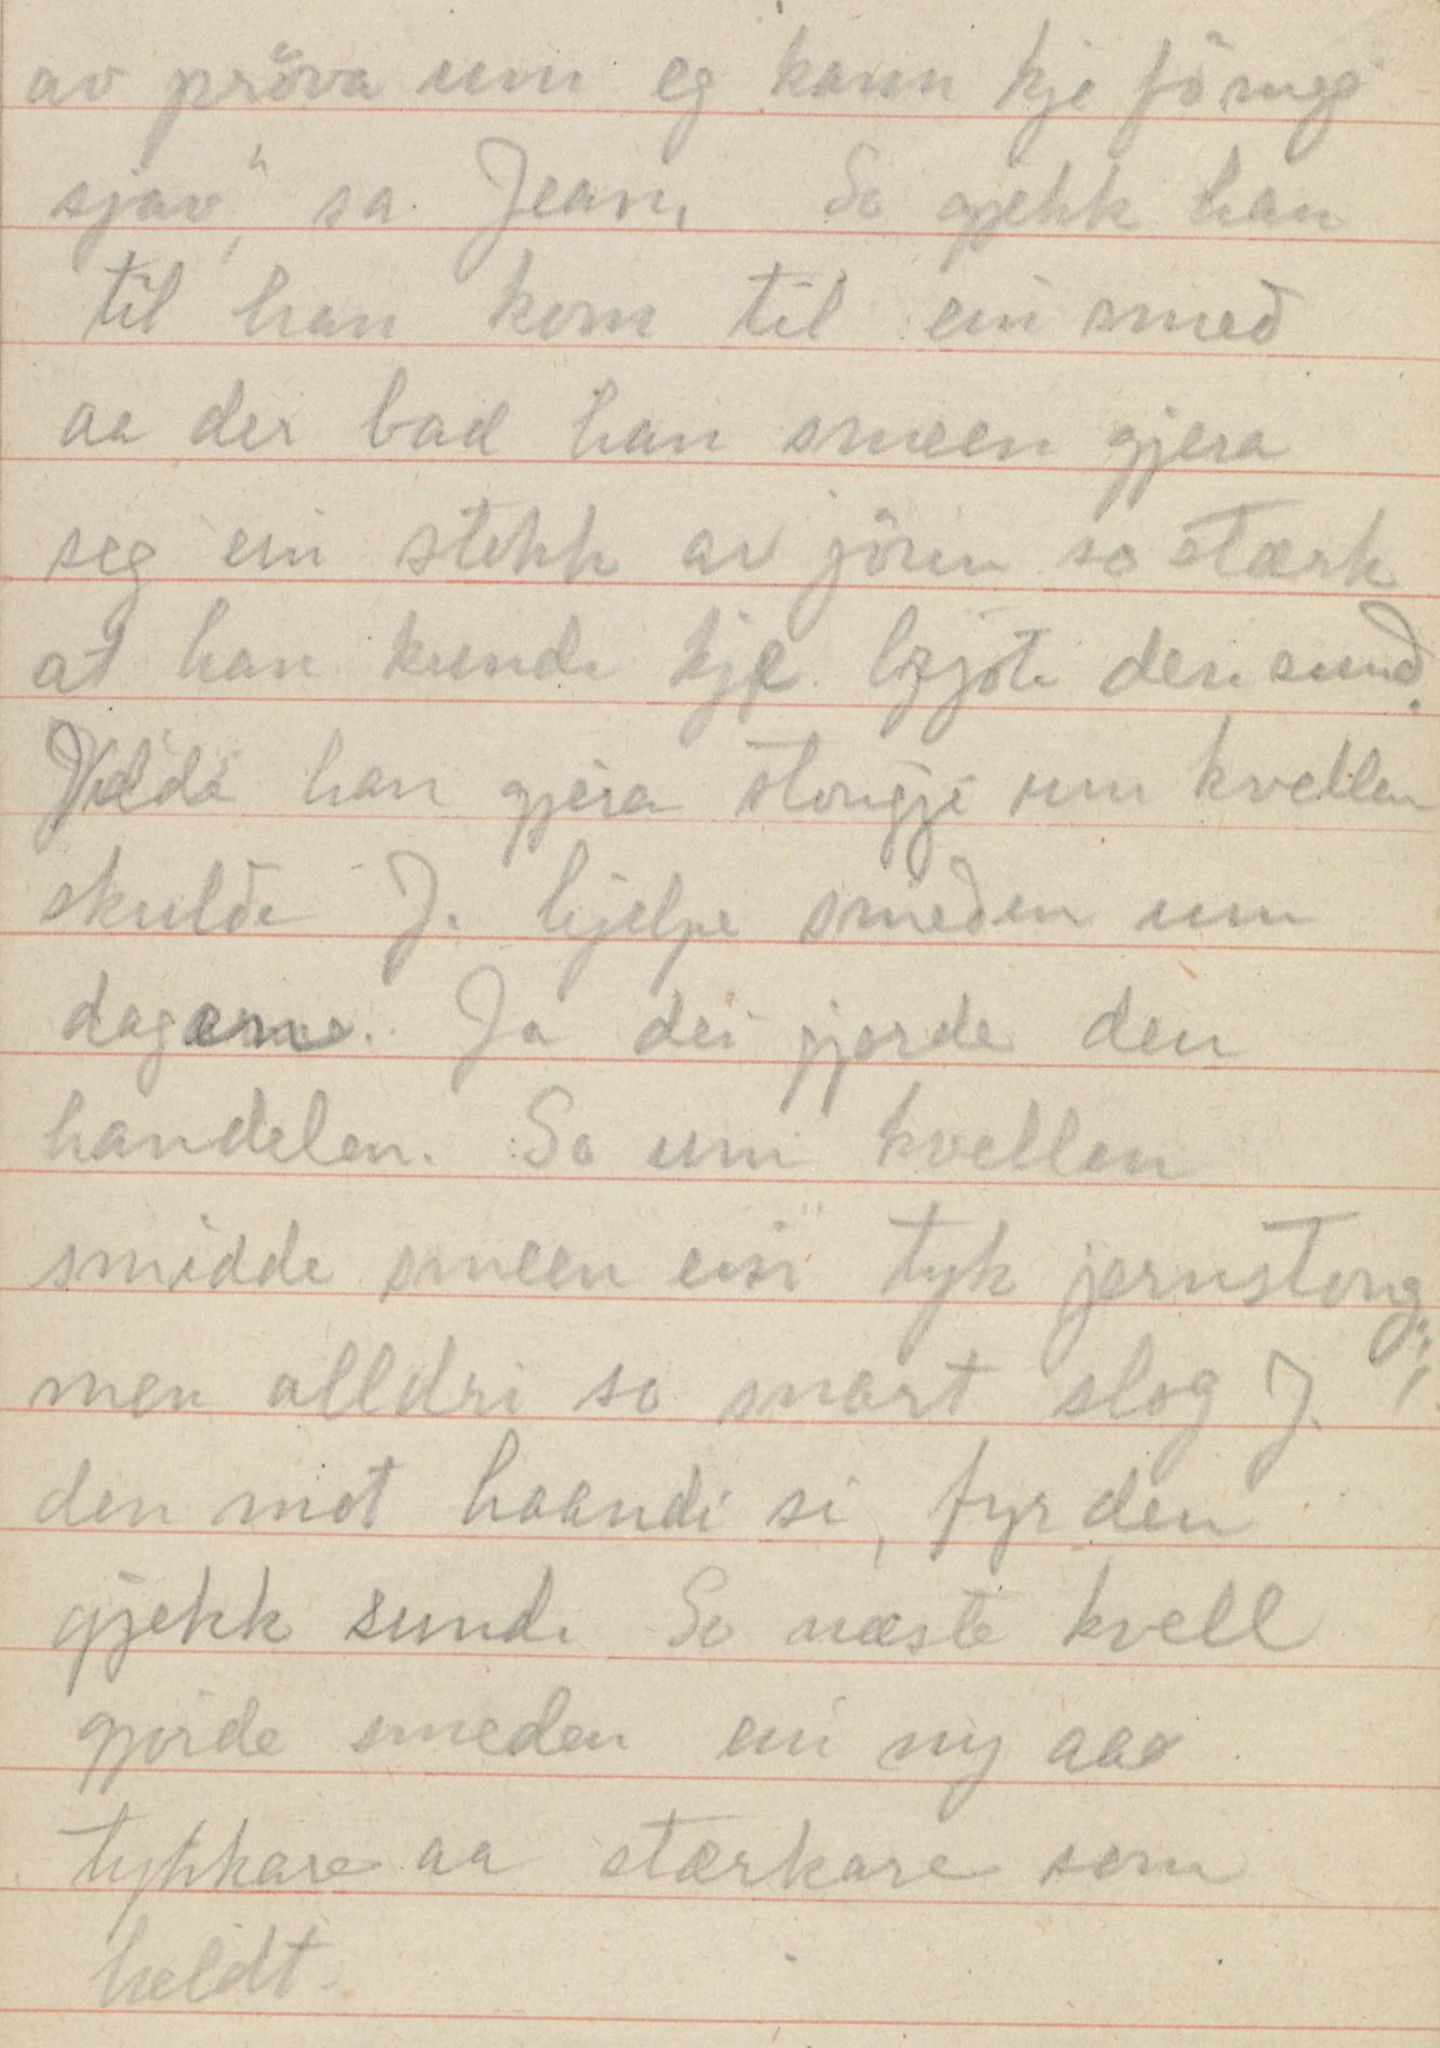 av pröva um eg kann kje fö meg
sjøv", sa Jean. So gjekk han
til han kom til ein smed
aa der bad han smeen gjera
seg ein stekk av jören so stærk
at han kunde kje brjote den sund.
Vilde han gjera stongje um kvellen
skulde J. hjelpe smeden um
dagarne. Ja dei gjorde den
handelen. So um kvellen
smidde smeen ein tyk jernstong;
men alldri so snart slog J.
den mot haandi si, fyr den
gjekk sund. So næste kvell
gjorde smeden ein ny aa
tykkare aa stærkare som
heldt.